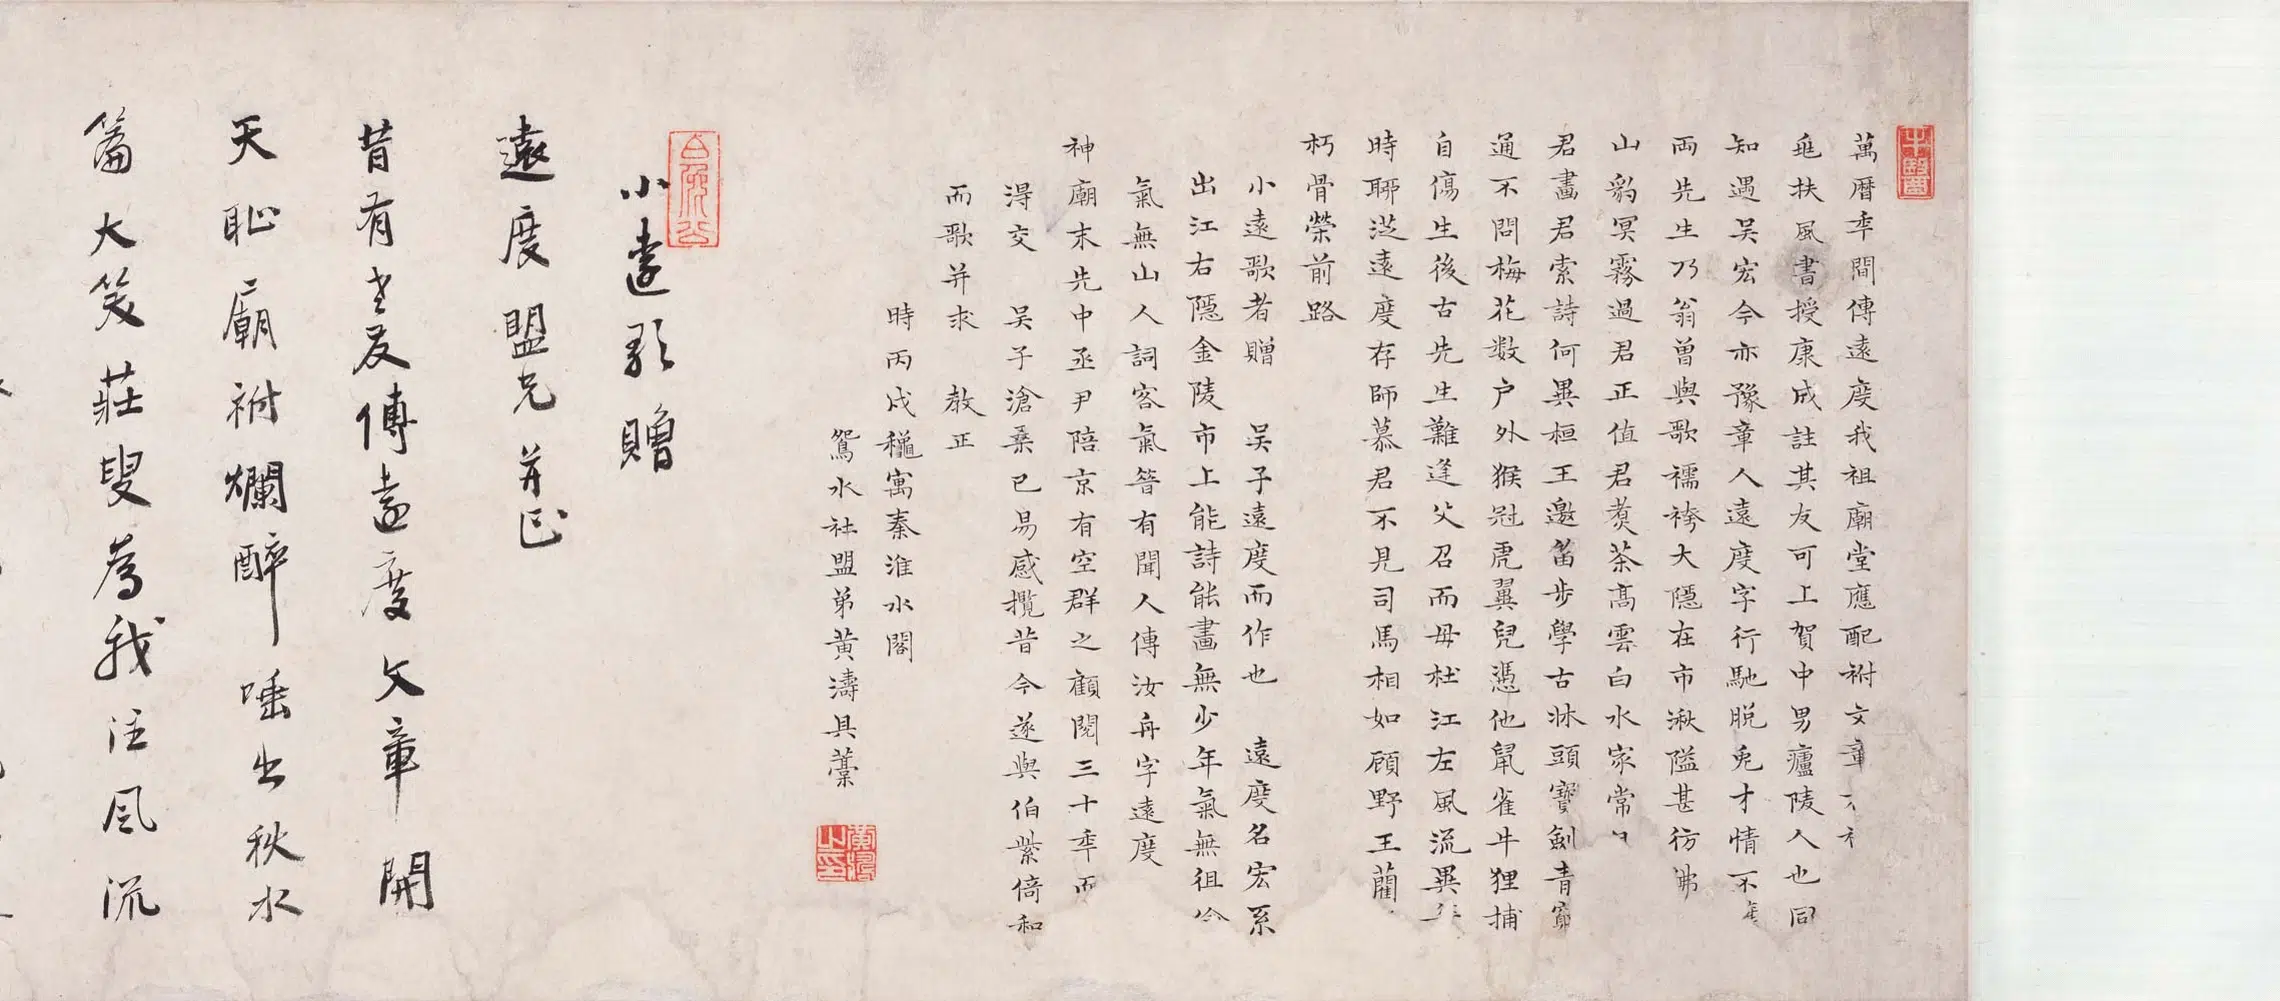 萬曆年間傅遠度我祖廟堂應配祔文章
垂扶風書授康成註其友可上賀中男廬陵人也同
知遇吳宏今亦豫章人遠度字行馳脫兔才情不
两先生乃翁曾與歌襦袴大隱在市湫隘甚彷彿
山豹冥霧過君正值君煑茶高雲白水家常
君畫君索詩何異桓王邀笛步學古牀頭寶劍青
通不問梅花数户外猴冠虎翼兒憑他鼠雀牛狸捕
自傷生後古先生難逢父召而毋杜江左風流異
時聊泛遠度存師慕君不見司馬相如顧野王藺
朽骨榮前路
小遠歌者贈 吴子遠度而作也 遠度名宏系
出江右隱金陵市上能詩能畫無少年氣無徂伧
氣無山人詞客氣簪有聞人傳汝舟字遠度
神廟末先中丞尹陪京有空群之顧閱三十年而
淂交 吴子滄桑已易感攬昔今遂與伯紫倚和
而歌并求 教正
時丙戌穐寓秦淮水閣
鴛水社盟弟黄濤具藳
小遠歌贈
遠度盟兄并正
昔有老友傅遠度文章開
天耻廟祔爛醉唾出秋水
篇大笑莊叟為我注風流